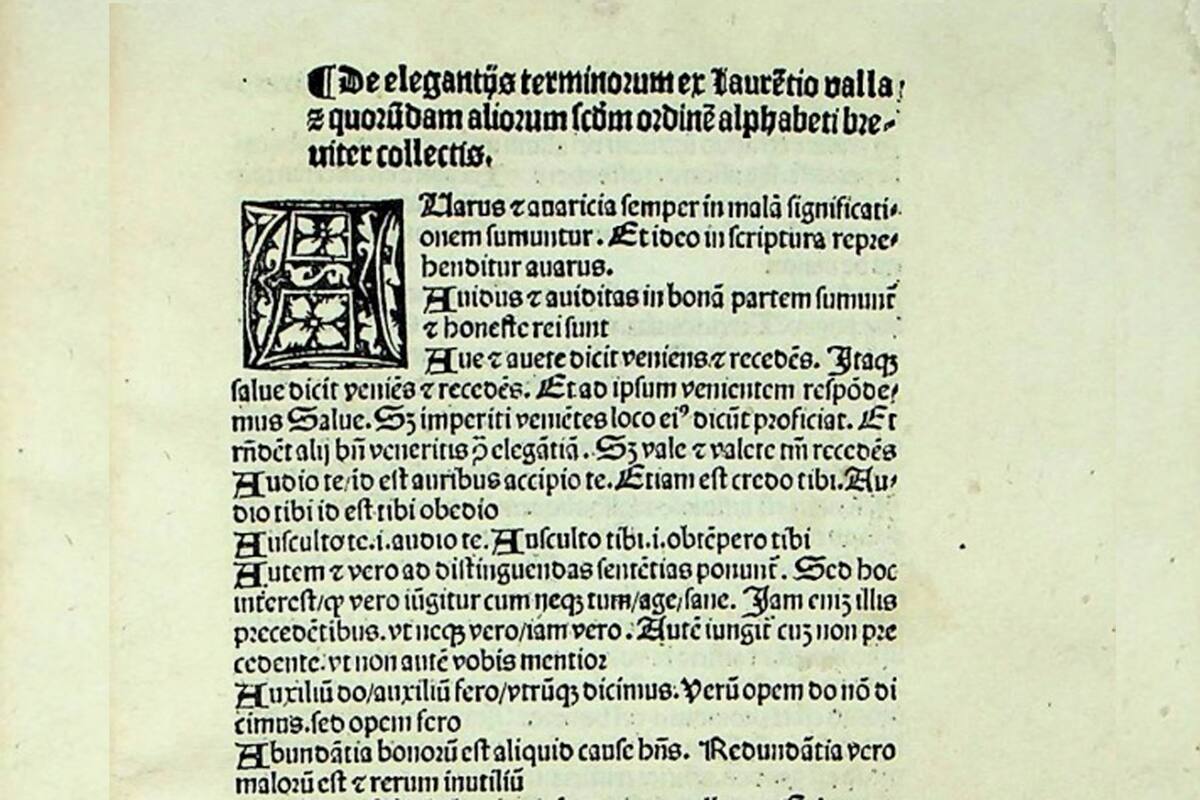 ¶ De elegantijs terminorum ex Laurẽtio valla /
⁊ quorũdam aliorum scďm ordinẽ alphabeti bre⸗
uiter collectis.
AUarus ⁊ auaricia semper in malã significati⸗
onem sumuntur. Et ideo in scriptura repre⸗
henditur auarus.
Auidus ⁊ auiditas in bonã partem sumunt̃
⁊ honeste rei sunt
Aue ⁊ auete dicit veniens ⁊ recedẽs. Itaqꝫ
salue dicit veniẽs ⁊ recedẽs. Et ad ipsum venientem respõde⸗
mus Salue. Sꝫ imperiti veniẽtes loco eiꝰ dicũt proficiat. Et
rñdẽt alij bñ veneritis ꝓ elegãtiã. Sꝫ vale ⁊ valete tm̃ recedẽs
Audio te/id est auribus accipio te. Etiam est credo tibi. Au⸗
dio tibi id est tibi obedio
Ausculto te.i.audio te. Ausculto tibi.i.obtẽpero tibi
Autem ⁊ vero ad distinguendas sentẽtias ponunt̃. Sed hoc
interest/ꝙ vero iũgitur cum neqꝫ tum/age/sane. Jam eniꝫ illis
precedẽtibus. vt neqꝫ vero/iam vero. Autẽ iungit̃ cuꝫ non pre
cedente. vt non autẽ vobis mentior
Auxiliũ do/auxiliũ fero/vtrũqꝫ dicimus. Verũ opem do nõ di
cimus. sed opem fero
Abundãtia bonorũ est aliquid cause bñs. Redundãtia vero
malorũ est ⁊ rerum inutiliũ